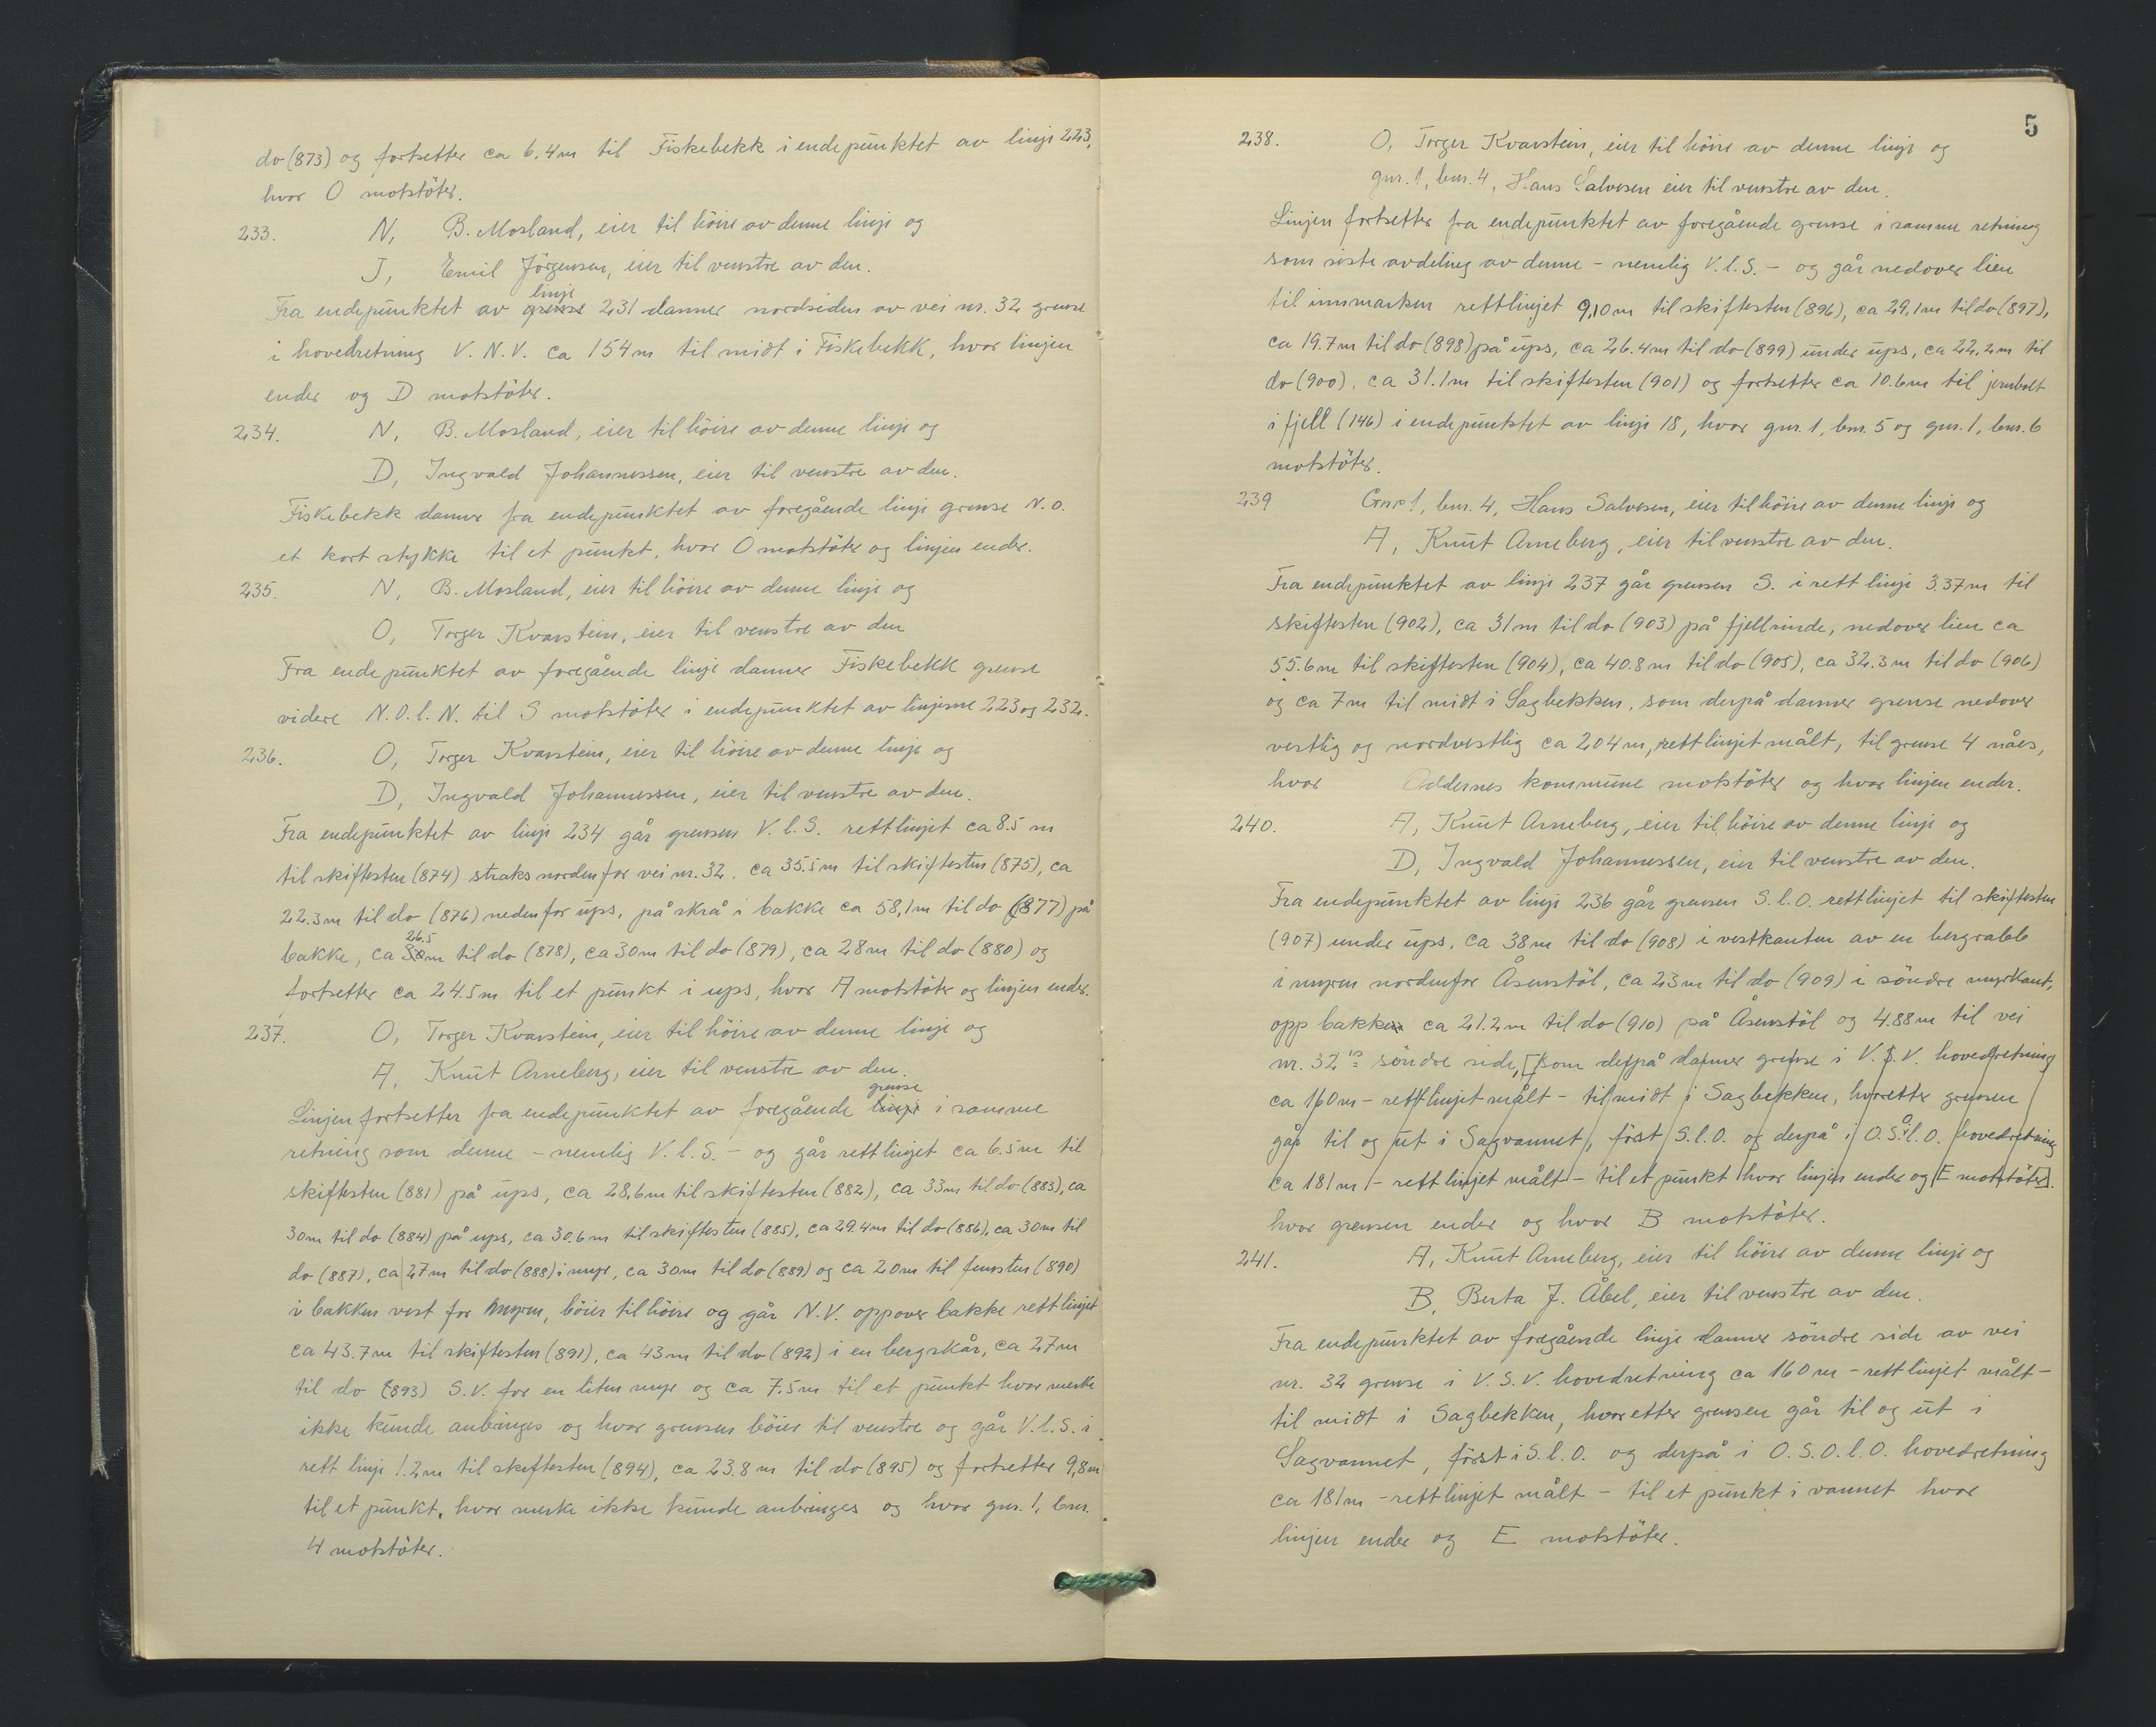 do (873) og fortsetter ca 6.4m til Fiskebekk i endepunktet av linje 223,
hvor O motstöter.
233. N, B. Mosland, eier til höire av denne linje og
J, Emil Jörgensen, eier til venstre av den.
linje
Fra endepunktet av grense 231 danner nordsiden av vei nr. 32 grense
i hovedretning V.N.V. ca 154m til midt i Fiskebekk, hvor linjen
ender og D motstöter.
234. N, B. Mosland, eier til höire av denne linje og
D, Ingvald Johannessen, eier til venstre av den.
Fiskebekk danner fra endepunktet av foregående linje grense N.O.
et kort stykke til et punkt, hvor O motstöter og linjen ender.
235. N, B. Mosland, eier til höire av denne linje og
O, Torger Kvarstein, eier til venstre av den
Fra endepunktet av foregående linje danner Fiskebekk grense
videre N.O.l.N. til S motstöter i endepunktet av linjerne 223 og 232.
236. O, Torger Kvarstein, eier til höire av denne linje og
D, Ingvald Johannessen, eier til venstre av den.
Fra endepunktet av linje 234 går grensen V.l.S. rettlinjet ca 8.5 m
til skiftesten (874) straks nordenfor vei nr. 32. ca 35.5m til skiftesten (875), ca
22.3m til do (876) nedenfor ups, på skrå i bakke ca 58,1m til do (877) på
26.5
bakke, ca m til do (878), ca 30m til do (879), ca 28m til do (880) og
fortsetter ca 24.5m til et punkt i ups, hvor A motstöter og linjen ender.
237. O, Torger Kvarstein, eier til höire av denne linje og
A, Knut Arneberg, eier til venstre av den.
grense
Linjen fortsetter fra endepunktet av foregående linje i samme
retning som denne - nemlig V.l.S. - og går rettlinjet ca 6.5m til
skiftesten (881) på ups, ca 28,6m til skiftesten (882), ca 33m til do (883), ca
30m til do (884) på ups, ca 30.6m til skiftesten (885), ca 29.4m til do (886), ca 30m til
do (887), ca 27m til do (888) i myr, ca 30m til do (889) og ca 20m til fenesten (890)
i bakken vest for myren, böier til höire og går N.V. oppover bakke rettlinjet
ca 43.7m til skiftesten (891), ca 43m til do (892) i en bergskår, ca 27m
til do (893) S.V. for en liten myr og ca 7.5m til et punkt hvor merke
ikke kunde anbringes og hvor grensen böier til venstre og går V.l.S. i
rett linje 1.2m til skiftesten (894), ca 23.8m til do (895) og fortsetter 9,8m
til et punkt, hvor merke ikke kunde anbringes og hvor gnr. 1, bnr.
4 motstöter.
5
238. O, Torger Kvarstein, eier til höire av denne linje og
gnr. 1, bnr. 4, Hans Salvesen eier til venstre av den.
Linjen fortsetter fra endepunktet av foregående grense i samme retning
som siste avdeling av denne - nemlig V.l.S. - og går nedover lien
til innmarken rettlinjet 9,10m til skiftesten (896), ca 29,1m til do (897),
ca 19.7m til do (898) på ups, ca 26.4m til do (899) under ups, ca 22,2m til
do (900), ca 31.1m til skiftesten (901) og fortsetter ca 10.6m til jernbolt
i fjell (146) i endepunktet av linje 18, hvor gnr. 1, bnr. 5 og gnr. 1, bnr. 6
motstöter.
239 Gnr 1, bnr. 4, Hans Salvesen, eier til höire av denne linje og
A, Knut Arneberg, eier til venstre av den.
Fra endepunktet av linje 237 går grensen S. i rett linje 3.37m til
skiftesten (902), ca 31m til do (903) på fjellrinde, nedover lien ca
55.6m til skiftesten (904), ca 40.8m til do (905), ca 32.3m til do (906)
og ca 7m til midt i Sagbekken, som derpå danner grense nedover
vestlig og nordvestlig ca 204m, rettlinjet målt, til grense 4 nåes,
hvor Oddernes kommune motstöter og hvor linjen ender.
240. A, Knut Arneberg, eier til höire av denne linje og
D, Ingvald Johannessen, eier til venstre av den.
Fra endepunktet av linje 236 går grensen S.l.O. rettlinjet til skiftesten
(907) under ups, ca 38m til do (908) i vestkanten av en bergrabb
i myren nordenfor Åsenstöl, ca 23m til do (909) i söndre myrkant,
opp bakken ca 21.2m til do (910) på Åsenstöl og 4.88m til vei
nr. 32 söndre side, [som derpå danner grense i V.S.V. hovedretning
ca 160m - rettlinjet målt - til midt i Sagbekken, hvoretter grensen
går til og ut i Sagvannet, först S.l.O. og derpå i O.S.O.l.O. hovedretning
ca 181m - rettlinjet målt - til et punkt hvor linjen ender og E motstöter].
hvor grensen ender og hvor B motstöter.
241. A, Knut Arneberg, eier til höire av denne linje og
B, Berta J. Åbel, eier til venstre av den.
Fra endepunktet av foregående linje danner söndre side av vei
nr. 32 grense i V.S.V. hovedretning ca 160m - rettlinjet målt -
til midt i Sagbekken, hvoretter grensen går til og ut i
Sagvannet, först i S.l.O. og derpå i O.S.O.l.O. hovedretning
ca 181m - rettlinjet målt - til et punkt i vannet hvor
linjen ender og E motstöter.